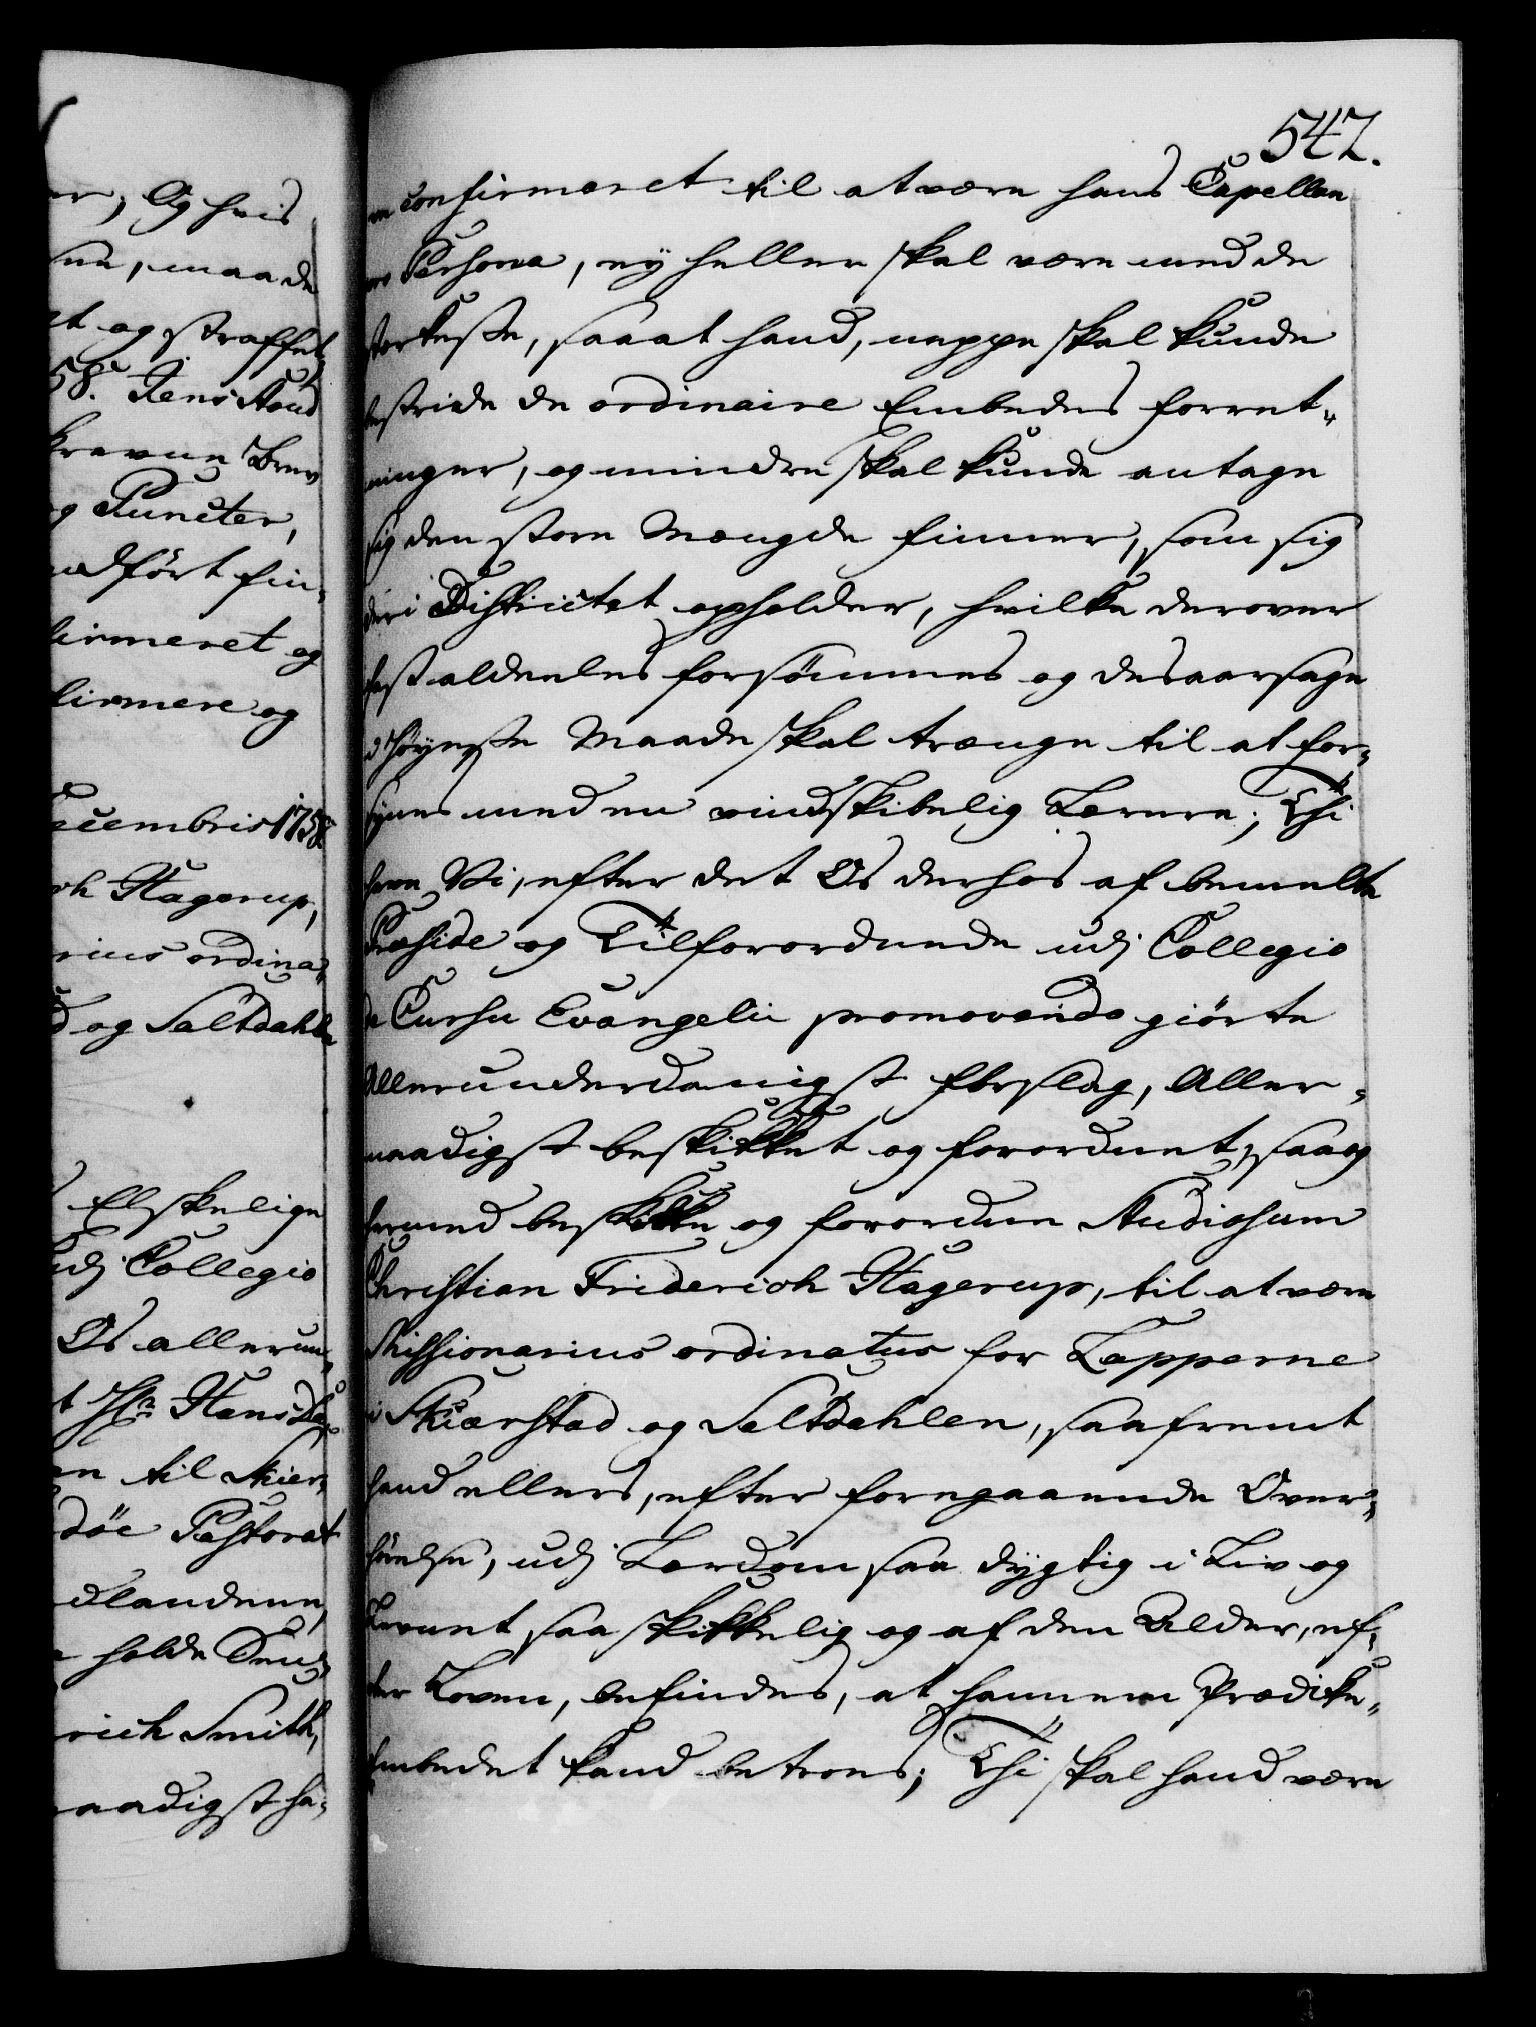 er, Og hvis
sen, maade
et og straffet
58. Jens Aoud
krevne Brev
og Puncter,
udført fin-
firmeret og
firmere og
Decembris 1758
ch Hagerup,
rius ordina-
d og Saltdahle
Elskelige
udj Collegio
Os allerun-
t Hr. Hans
en til Skier-
döe Pastorat
dlandene,
holde
rich Smith,
naadigst ha-
542.
confirmeret til at være hans Capellan
pro Persona, ey heller skal være med de
sterkeste, saa at hand, neppe skal kunde
bestride de ordinaire Embedes forret-
ninger, og mindre skal kunde antage
sig den store Mængde Finner, som sig
der i Districtet opholder, hvilke derover
fast aldeeles forsømmes og desaarsage
i Høyeste Maade skal trænge til at for-
synes med en vindskibelig Lærere; Thi
have Vi, efter det Os derhos af bemelte
Præside og Tilforordnede udj Collegio
de Cursu Evangelii promovendo giörte
Allerunderdanigst Forslag, Aller-
naadigst beskikket og forordnet, saa og
hermed beskikke og forordne Studiosum
Christian Friderich Hagerup, til at være
Missionarius ordinatus for Lapperne
i Skiærstad og Saltdahlen, saafremt
hand ellers, efter foregaaende Over-
hörelse, udj Lærdom saa dygtig i Liv og
Levnet saa skikkelig og af den Alder, ef-
ter Loven, befindes, at hannem Prædike-
Embedet kand betroes; Thi skal hand være